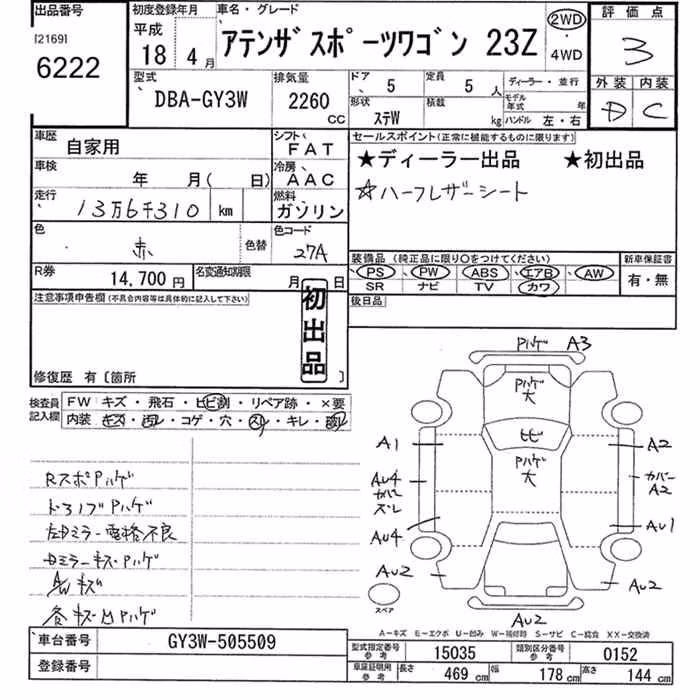 出品番号
[2169]
6222
初度登録年月
平成
18年 4月
車名・グレード
アテンザスポーツワゴン 23Z
2WD
・
4WD
評価点
3
外装 内装
D C
型式
DBA-GY3W
排気量
2260
CC
ドア 5
定員 5 人
形状 ステW
積載 kg
ディーラー・並行
モデル年式 年
ハンドル 左・右
車歴 自家用
シフト FAT
車検 年 月( 日)
冷房 AAC
走行 13万6千310 km
燃料 ガソリン
色 赤
色替
色コード 27A
R券 14,700 円
名変通知期限 月 日
セールスポイント(正常に機能するものに限ります)
★ディーラー出品 ★初出品
☆ハーフレザーシート
装備品 (純正品に限り○をつけてください)
PS PW ABS エアB AW
SR ナビ TV カワ
新車保証書
有・無
後日品
注意事項申告欄(不具合内容等は具体的に記入して下さい)
初出品
修復歴 有〔箇所 〕
検査員記入欄
FW キズ・飛石・ヒビ割・リペア跡・×要
内装 キズ・汚レ・コゲ・穴・スレ・キレ・
RスポPハゲ
ドアノブPハゲ
左Dミラー電格不良
Dミラーキズ・Pハゲ
AWキズ
各キズ凹Pハゲ
Pハゲ A3
Pハゲ
大
ヒビ
Pハゲ
大
A1
A2
AU4
カバー
ズレ
カバー
A2
AU4
AU1
AU2
AU2
AU2
スペア
A-キズ E-エクボ U-凹み W-補修跡 S-サビ C-腐食 XX-交換済
車台番号 GY3W-505509
登録番号
型式指定番号 参考 15035
類別区分番号 参考 0152
車庫証明用 参考 長さ 469 cm 幅 178 cm 高さ 144 cm